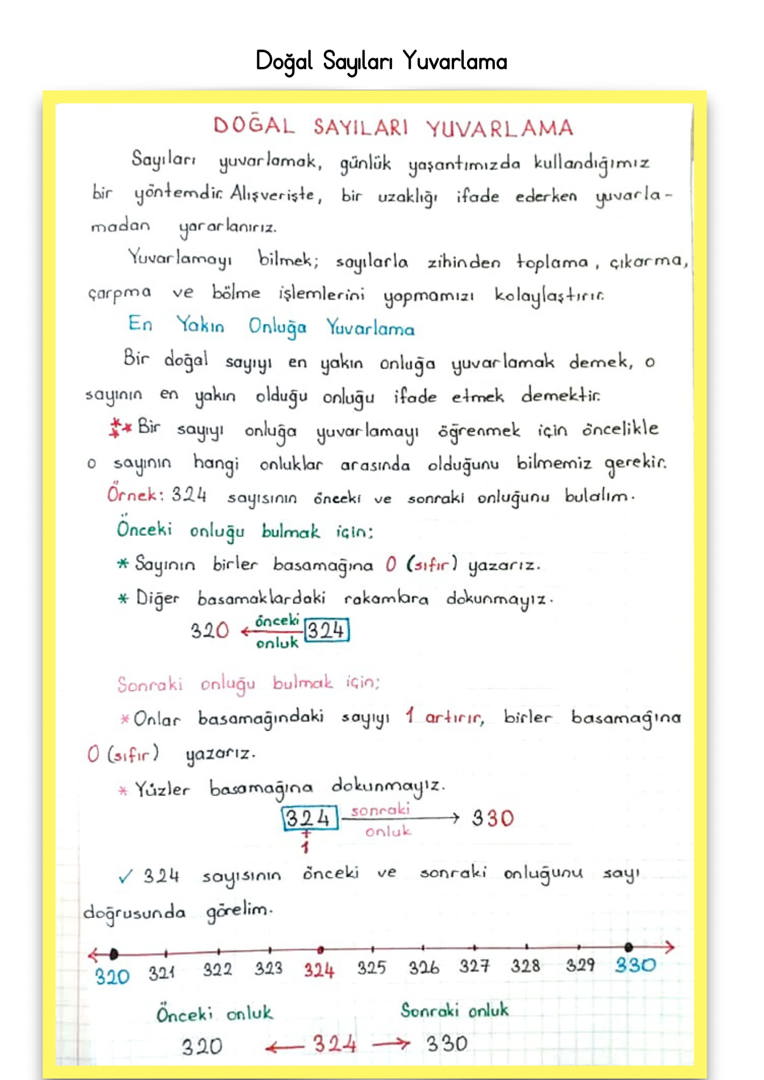 Doğal Sayıları Yuvarlama
DOĞAL SAYILARI YUVARLAMA
Sayıları yuvarlamak, günlük yaşantımızda kullandığımız
bir yöntemdir. Alışverişte, bir uzaklığı ifade ederken yuvarla-
madan yararlanırız.
Yuvarlamayı bilmek; sayılarla zihinden toplama, çıkarma,
çarpma ve bölme işlemlerini yapmamızı kolaylaştırır.
En Yakın Onluğa Yuvarlama
Bir doğal sayıyı en yakın onluğa yuvarlamak demek, o
sayının en yakın olduğu onluğu ifade etmek demektir.
*** Bir sayıyı onluğa yuvarlamayı öğrenmek için öncelikle
o sayının hangi onluklar arasında olduğunu bilmemiz gerekir.
Örnek: 324 sayısının önceki ve sonraki onluğunu bulalım.
Önceki onluğu bulmak için;
* Sayının birler basamağına 0 (sıfır) yazarız.
* Diğer basamaklardaki rakamlara dokunmayız.
320 ← önceki onluk 324
Sonraki onluğu bulmak için;
* Onlar basamağındaki sayıyı 1 artırır, birler basamağına
0 (sıfır) yazarız.
* Yüzler basamağına dokunmayız.
324 sonraki onluk → 330
+
1
✓ 324 sayısının önceki ve sonraki onluğunu sayı
doğrusunda görelim.
320 321 322 323 324 325 326 327 328 329 330
Önceki onluk Sonraki onluk
320 ← 324 → 330